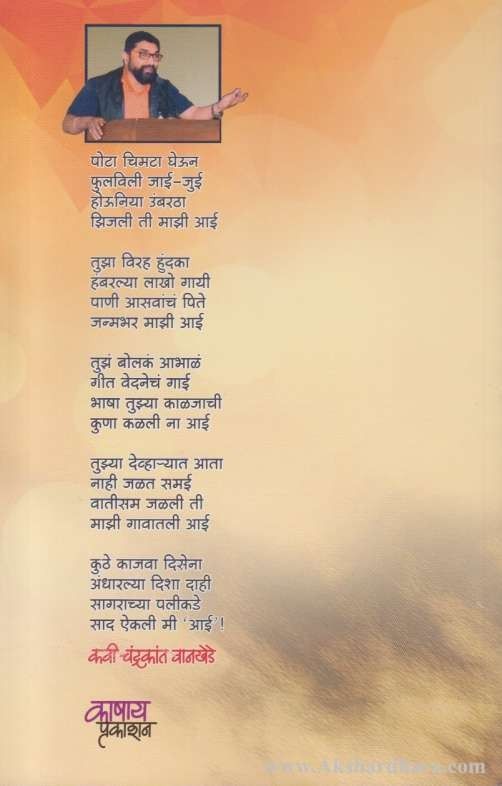 पोटा चिमटा घेऊन
फुलविली जाई-जुई
होऊनिया उंबरठा
झिजली ती माझी आई
तुझा विरह हुंदका
हंबरल्या लाखो गायी
पाणी आसवांचं पिते
जन्मभर माझी आई
तुझं बोलकं आभाळं
गीत वेदनेचं गाई
भाषा तुझ्या काळजाची
कुणा कळली ना आई
तुझ्या देव्हाऱ्यात आता
नाही जळत समई
वातीसम जळली ती
माझी गावातली आई
कुठे काजवा दिसेना
अंधारल्या दिशा दाही
सागराच्या पलीकडे
साद ऐकली मी 'आई'!
कवी-चंद्रकांत वानखेडे
काषाय
प्रकाशन
www.Akshardhara.com